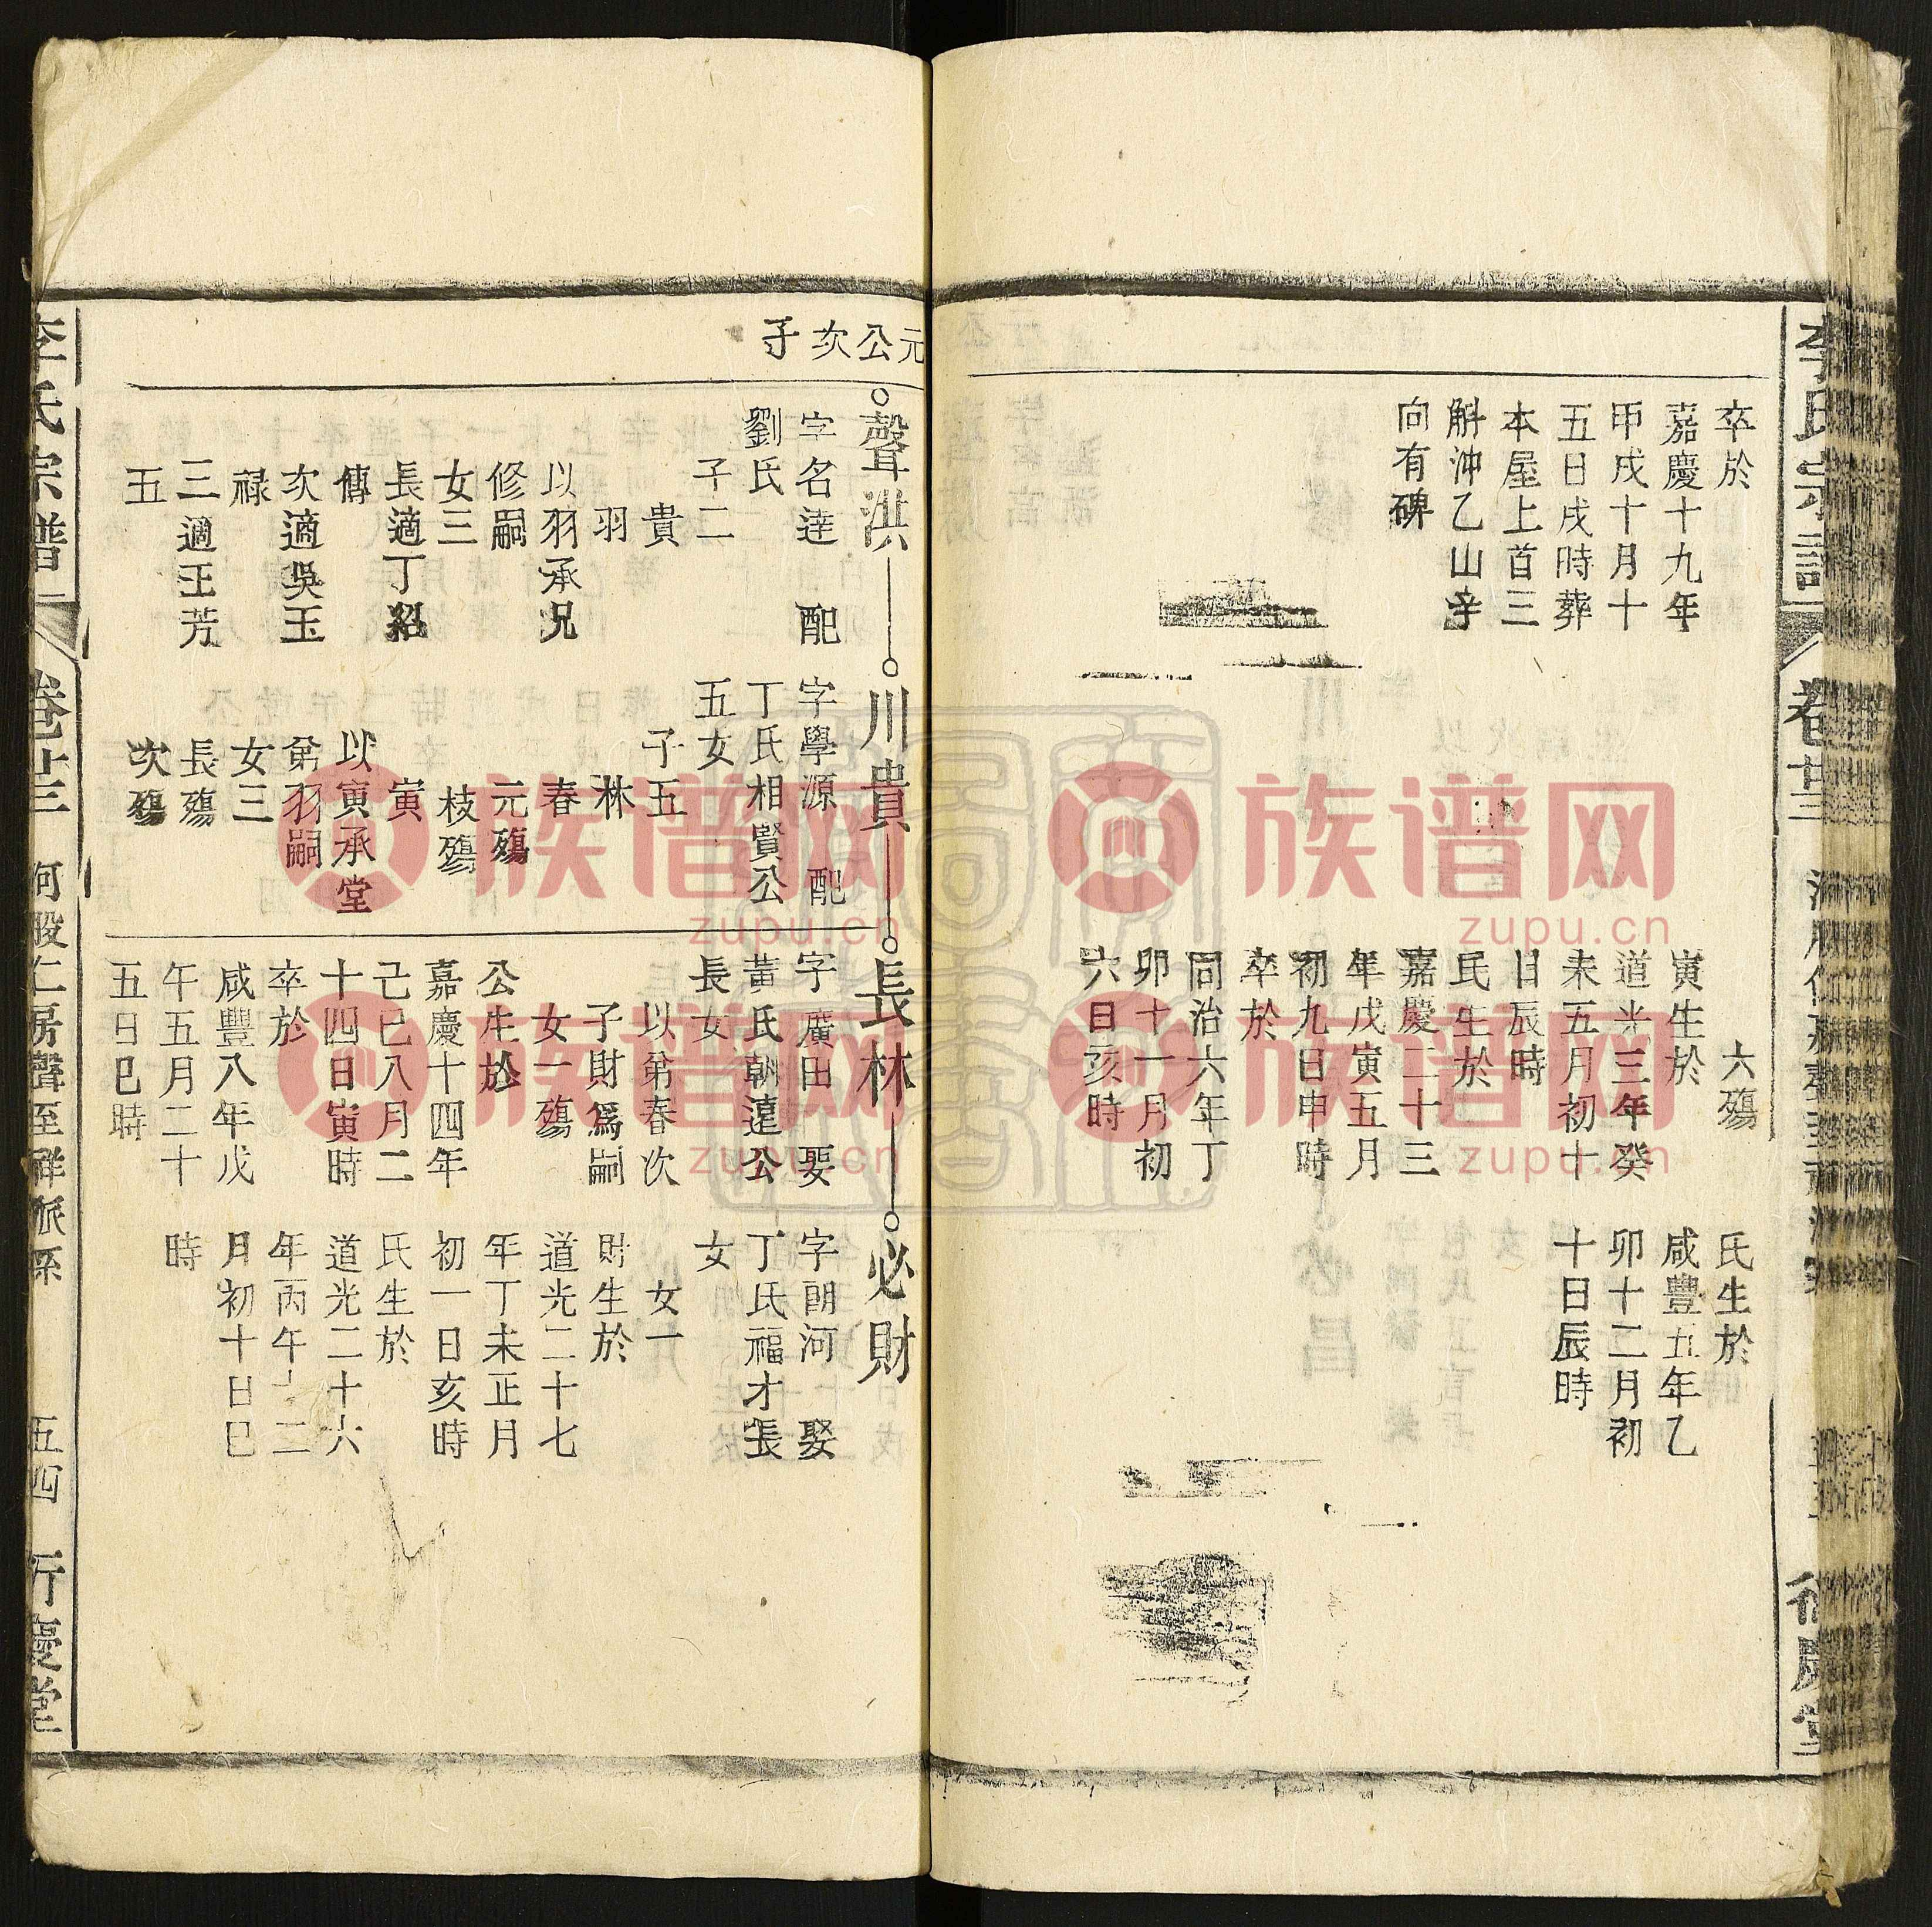 李氏宗譜
卷廿三
卒於
嘉慶十九年
甲戌十月十
五日戌時葬
本屋上首三
斛沖乙山辛
向有碑
六殤
寅生於
道光三年癸
未五月初十
日辰時
氏生於
嘉慶二十三
年戊寅五月
初九日申時
卒於
同治六年丁
卯十一月初
六日亥時
氏生於
咸豐五年乙
卯十二月初
十日辰時
元公次子
聲洪
字名達 配
劉氏
子二
貴
羽
以羽承兄
修嗣
女三
長適丁紹
傳
次適吳玉
禄
三適王芳
五
川貴
字學源 配
丁氏相賢公
五女
子五
林
春
元殤
枝殤
寅
以寅承堂
弟羽嗣
女三
長殤
次殤
長林
字廣田 娶
黃氏朝遠公
長女
以弟春次
子財為嗣
女一殤
公生於
嘉慶十四年
己巳八月二
十四日寅時
卒於
咸豐八年戊
午五月二十
五日巳時
必財
字朗河 娶
丁氏福才長
女
女一
財生於
道光二十七
年丁未正月
初一日亥時
氏生於
道光二十六
年丙午十二
月初十日巳
時
李氏宗譜
卷廿三
河股仁房聲至祥派系
五四
衍慶堂
族谱网
zupu.cn
族谱网
zupu.cn
族谱网
zupu.cn
族谱网
zupu.cn